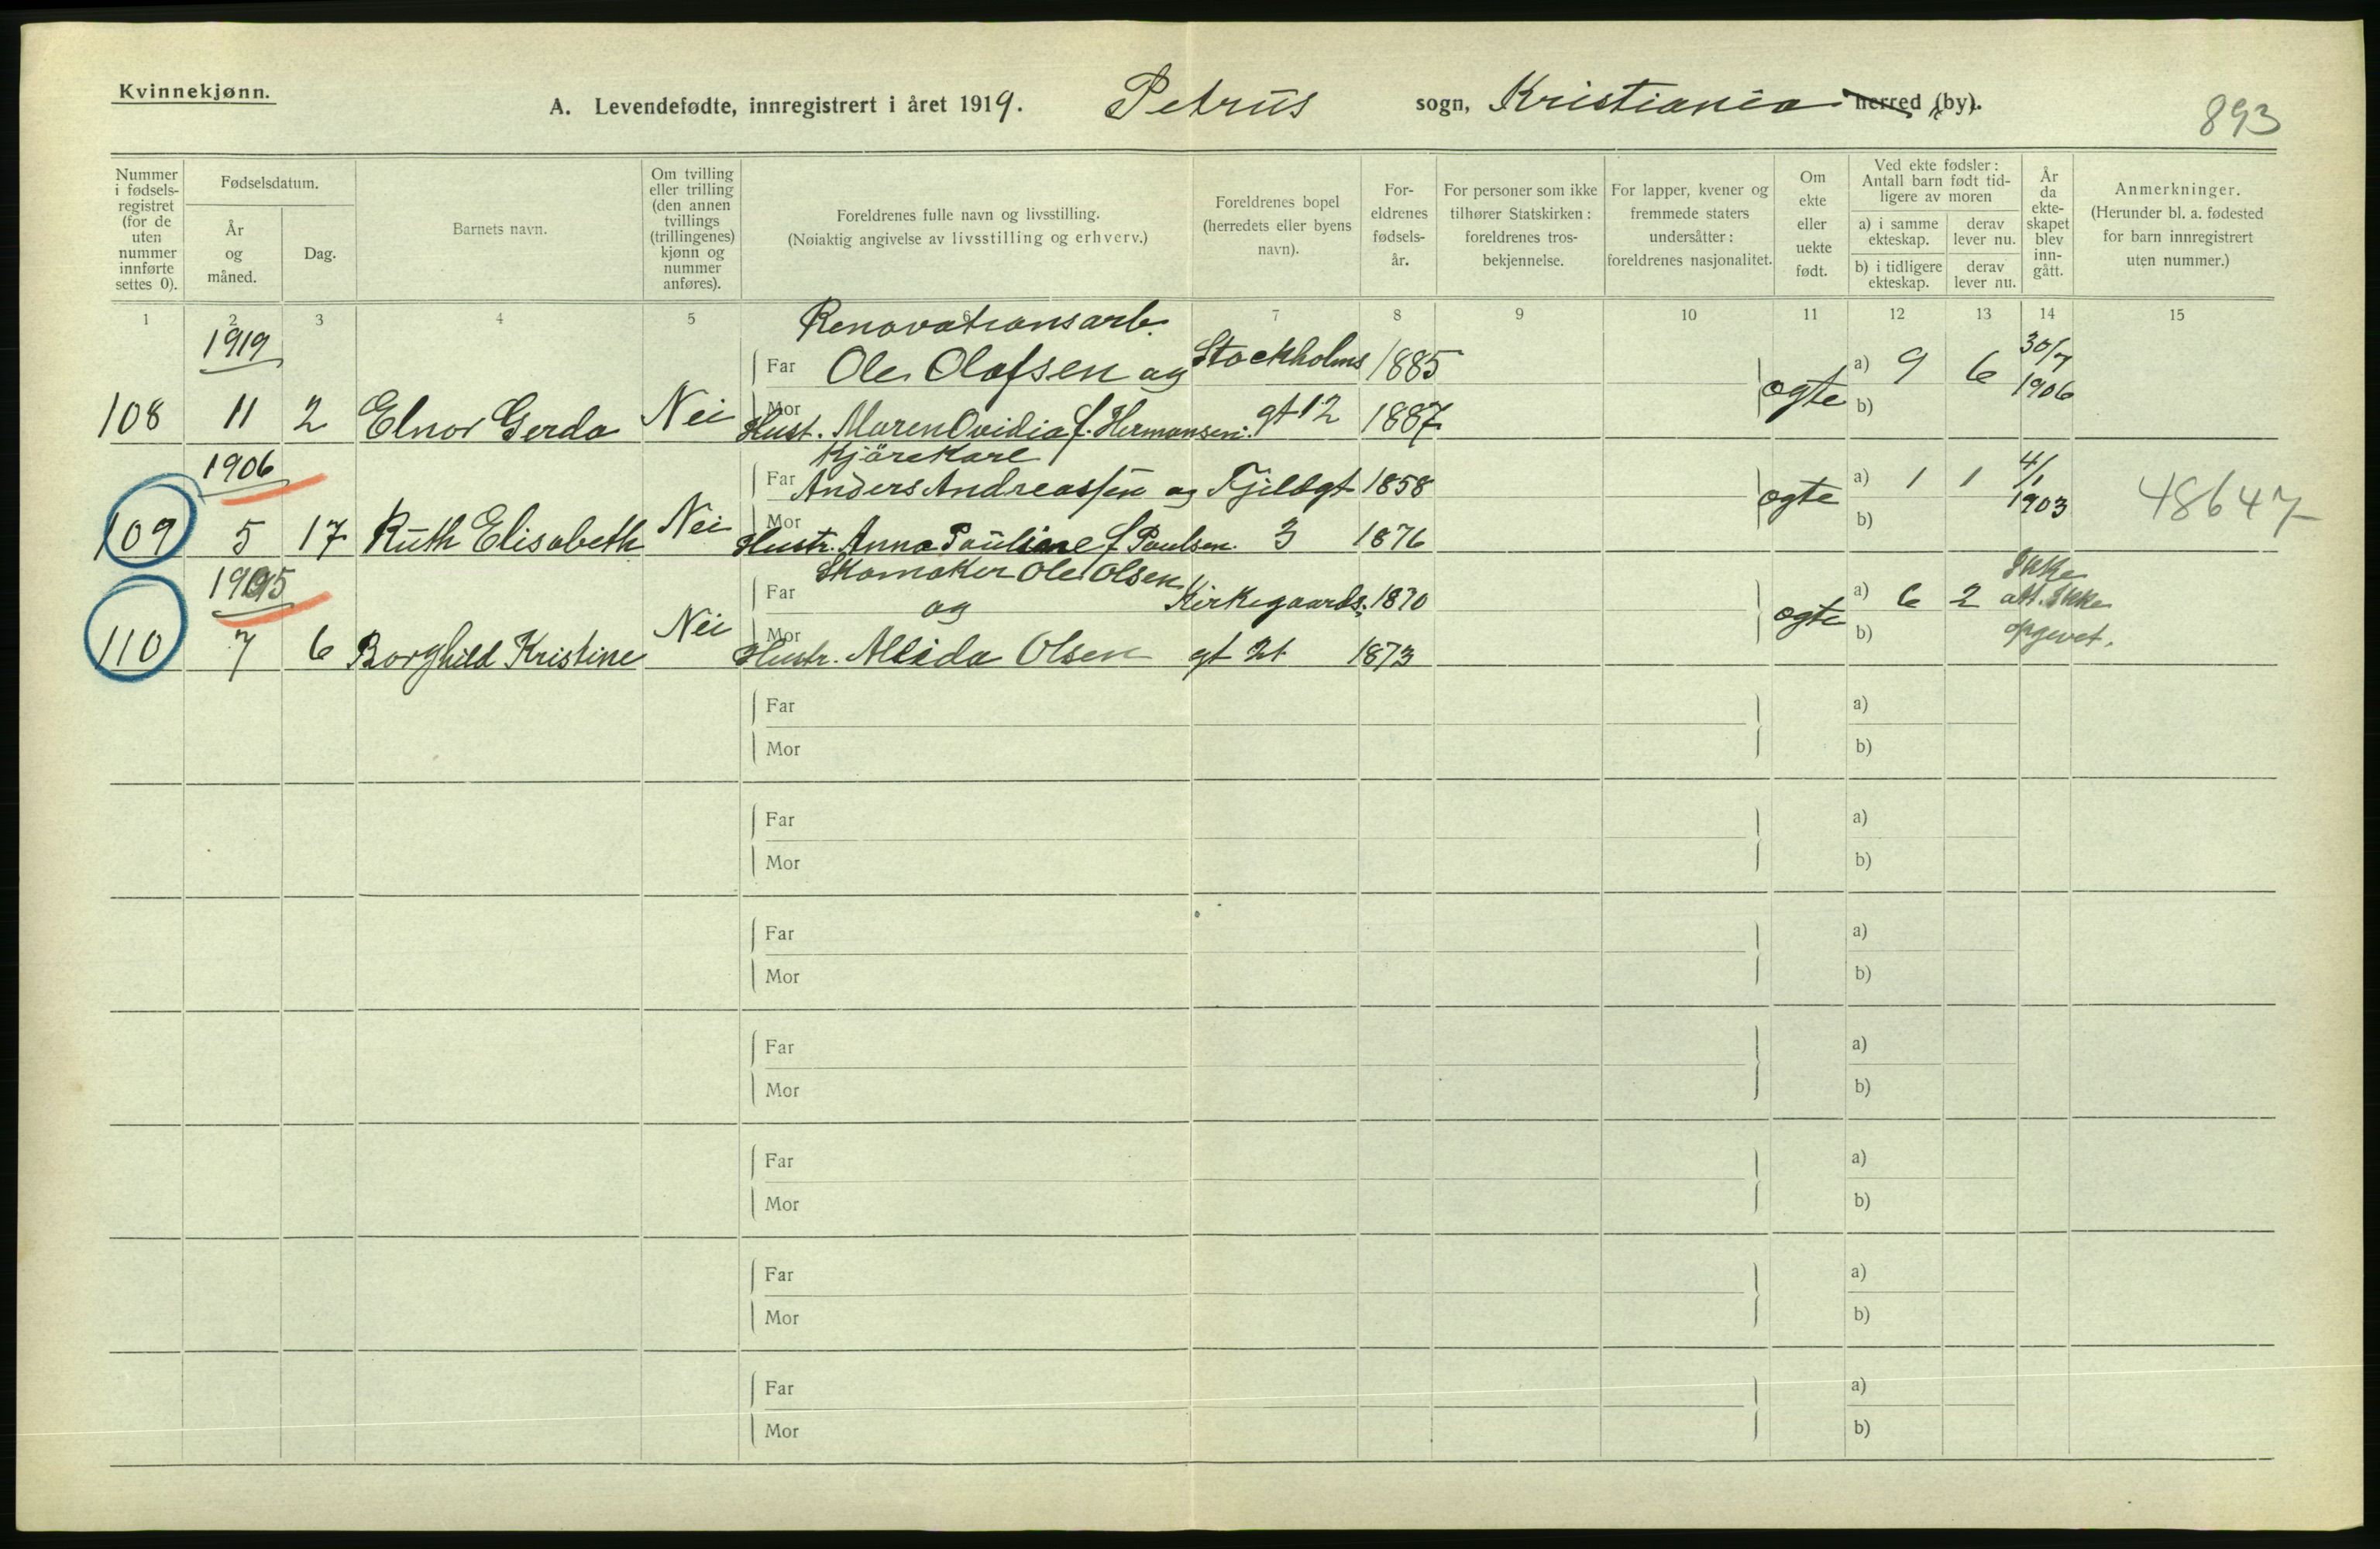 Kvinnekjønn.
A. Levendefødte, innregistrert i året 1919. Petrus sogn, Kristiania herred (by).
893
Nummer i fødsels-registret (for de uten nummer innførte settes 0).
Fødselsdatum.
År og måned.
Dag.
Barnets navn.
Om tvilling eller trilling (den annen tvillings (trillingenes) kjønn og nummer anføres).
Foreldrenes fulle navn og livsstilling.
(Nøiaktig angivelse av livsstilling og erhverv.)
Foreldrenes bopel (herredets eller byens navn).
For-eldrenes fødsels-år.
For personer som ikke tilhører Statskirken: foreldrenes tros-bekjennelse.
For lapper, kvener og fremmede staters undersåtter: foreldrenes nasjonalitet.
Om ekte eller uekte født.
Ved ekte fødsler: Antall barn født tid-ligere av moren
a) i samme ekteskap.
derav lever nu.
b) i tidligere ekteskap.
derav lever nu.
År da ekte-skapet blev inn-gått.
Anmerkninger.
(Herunder bl. a. fødested for barn innregistrert uten nummer.)
1 2 3 4 5 6 7 8 9 10 11 12 13 14 15
1919 Renovationsarb.
Far Ole Olafsen og Stockholms 1885 a) 9 6 30/7 1906
108 11 2 Elnor Gerda Nei Mor Hust. Maren Ovidia f. Hermansen. gt 12 1887 ogte b)
1906 Kjörekarl
Far Anders Andreassen og Fjeldgt 1858 a) 1 1 4/1 1903
109 5 17 Ruth Elisabeth Nei Mor Hustr. Anna Pauline f Paulsen. 3 1876 ogte b) 48647
1905 Skomaker Ole Olsen
Far og Kirkegaards. 1870 a) 6 2 Ikke att. Ikke opgevet.
110 7 6 Borghild Kristine Nei Mor Hustr. Alida Olsen gt 21 1873 ogte b)
Far a)
Mor b)
Far a)
Mor b)
Far a)
Mor b)
Far a)
Mor b)
Far a)
Mor b)
Far a)
Mor b)
Far a)
Mor b)